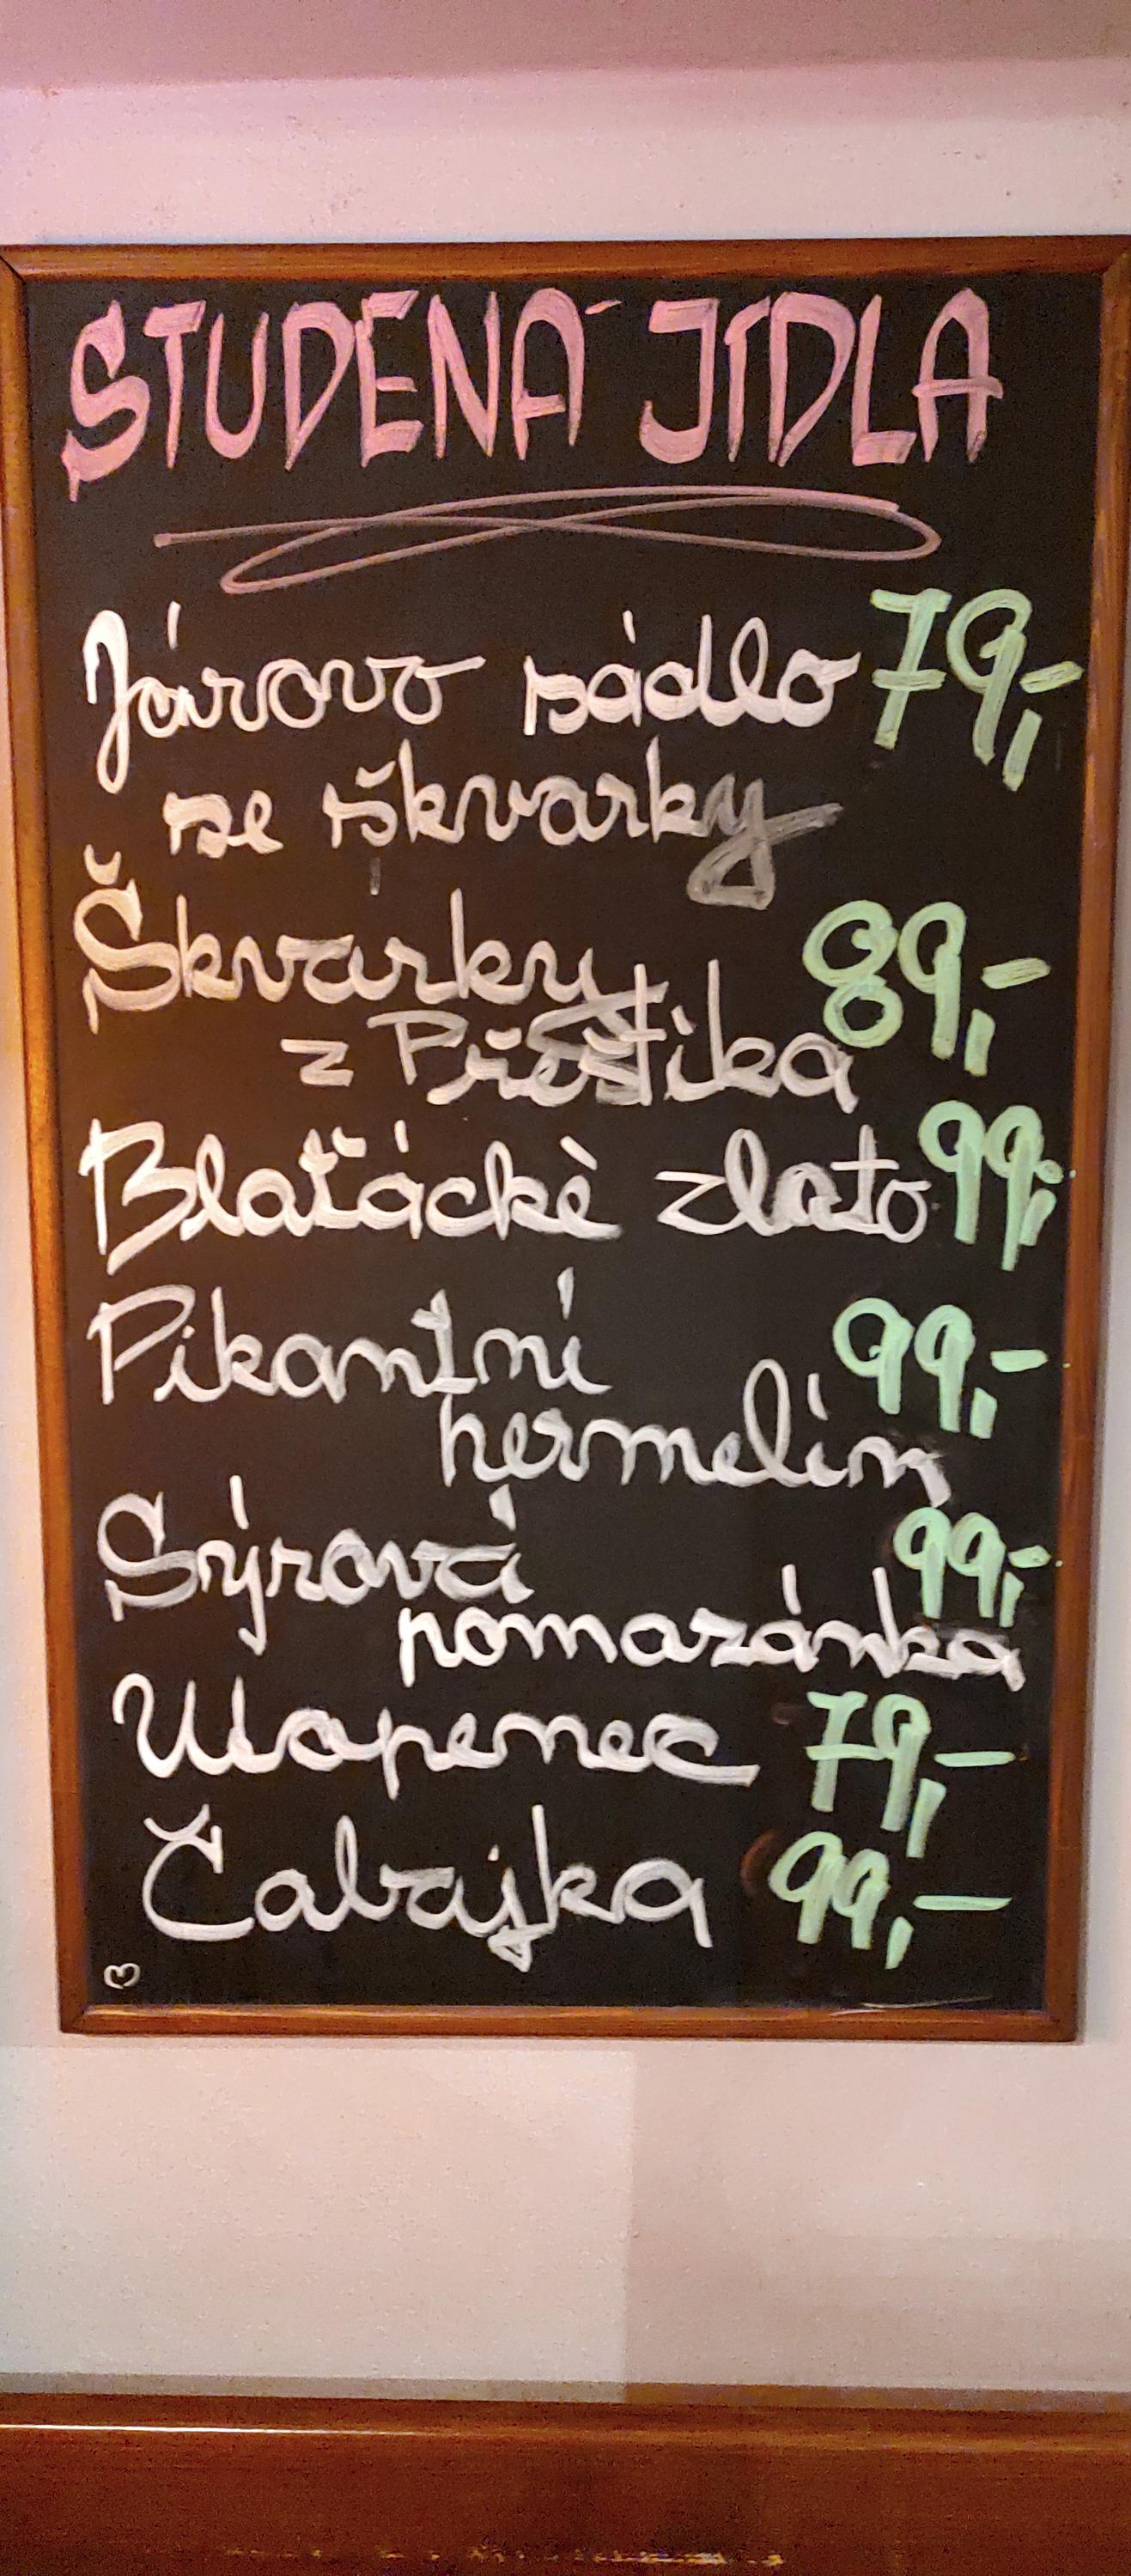 STUDENÁ JÍDLA
Járovo sádlo 79,-
se škvarky
Škvarky 89,-
z Přeštíka
Blaťácké zlato 99,-
Pikantní 99,-
hermelín
Sýrová 99,-
pomazánka
Utopenec 79,-
Čabajka 99,-